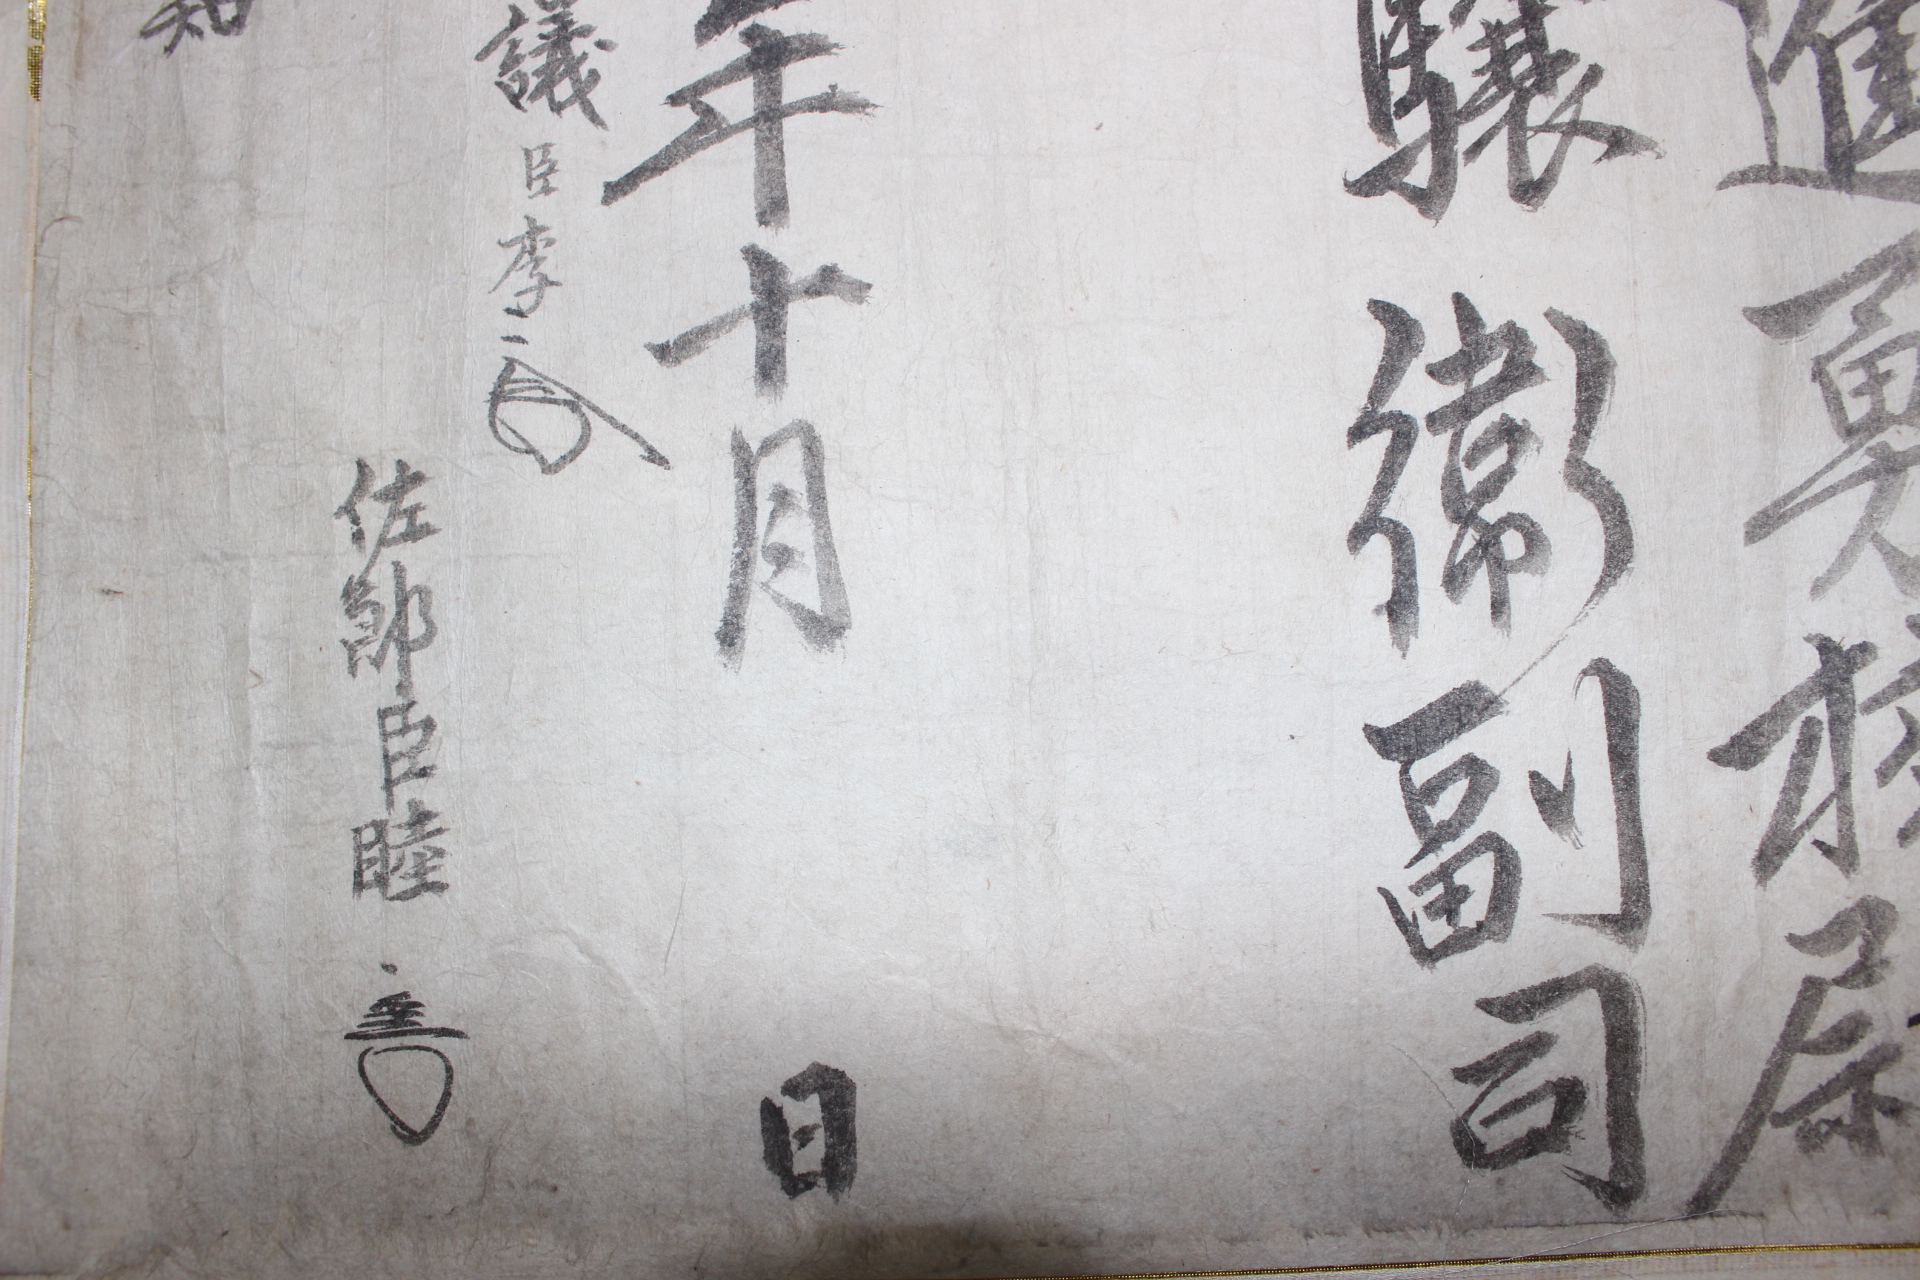 進勇校尉
驤衛副司
年十月 日
議臣李
佐郞臣睦
知